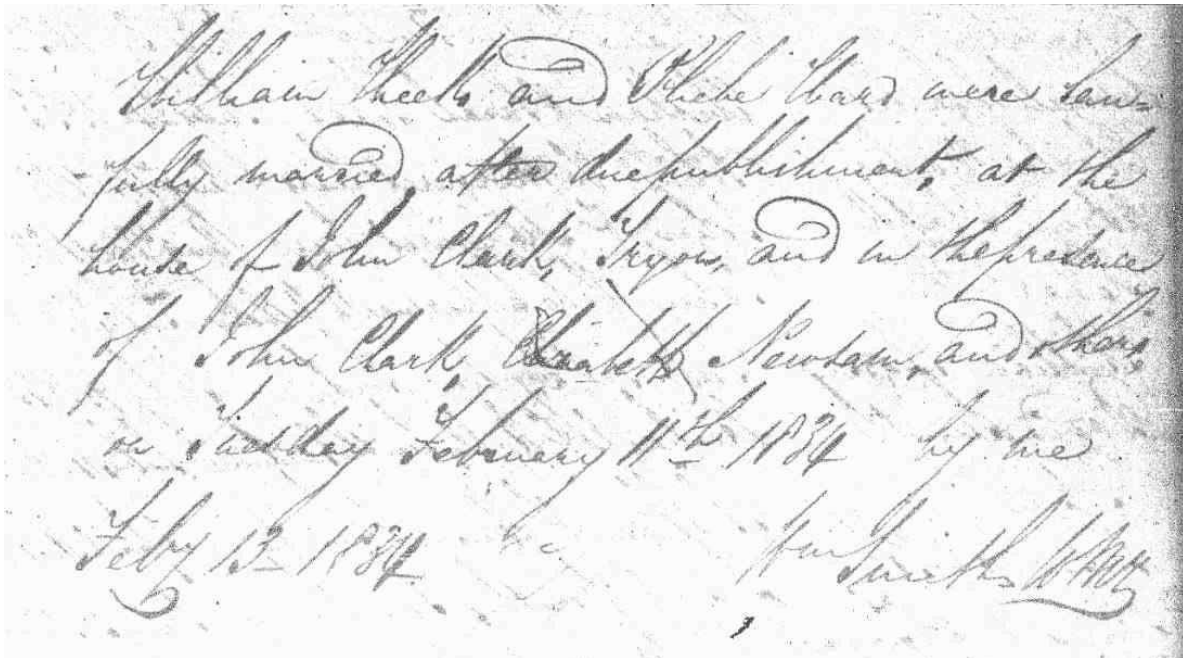 William and Phebe Ward were law=
fully married, after due publishment, at the
house of John Clark, Tryon, and in the presence
of John Clark, Elizabeth Newsom, and others,
on Tuesday February 11th 1834 by me
Feby 13 1834 Wm Smith